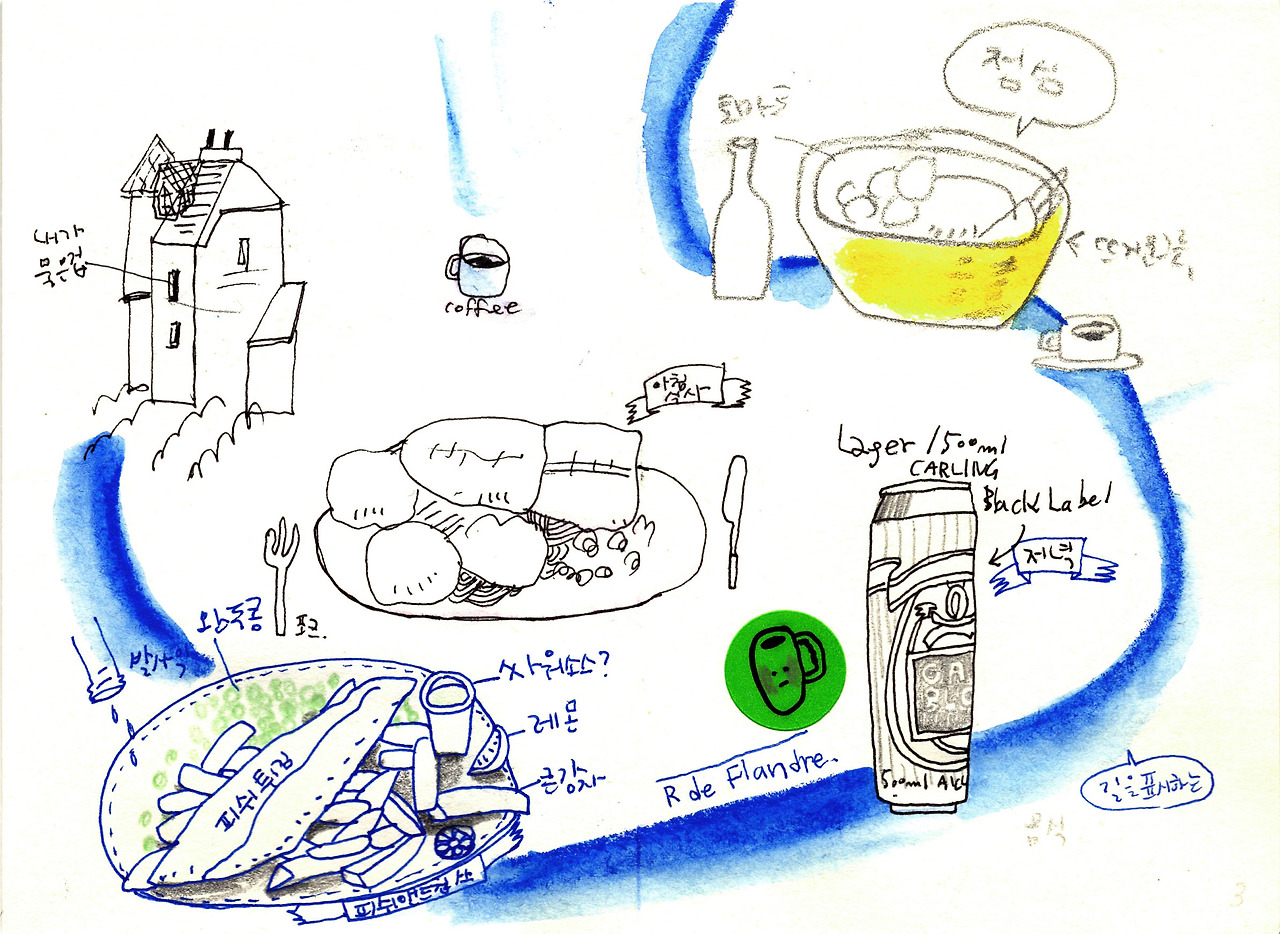 점심
토마토
내가
묵은집
뜨거운물
coffee
아침
식사
Lager / 500ml
CARLING
Black Label
저녁
포크.
왕두콩
싸워소스?
레몬
큰감자
피쉬튀김
피쉬앤드칩스
R de Flandre.
500ml
길을표시하는
음식
3